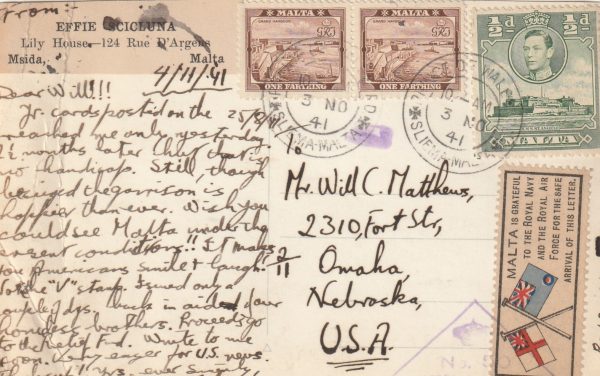 From:-
EFFIE SCICLUNA
Lily House-124 Rue D'Argens
Msida, Malta
4/11/41
Dear Will!!!
Yr. cards posted on the 25/8/41
reached me only yesterday
2½ months later. But that's
no handicap. Still, though
the garrison is
happier than ever. Wish you
could see Malta under the
present conditions!! It makes
you Americans smile & laugh!
Note "V" stamp. Issued only a
couple of dys. back in aid of our
homeless brothers. Proceeds go
to the Relief Fnd. Write to me
soon. Very eager for U.S. news.
Yrs. ever sincerely,
MALTA
GRAND HARBOUR
ONE FARTHING
MALTA
GRAND HARBOUR
ONE FARTHING
½d ½d
MALTA
10 - AM
3 NO
41
SLIEMA-MALTA
10 - AM
3 NO
41
SLIEMA-MALTA
To
Mr. Will C. Matthews,
2310, Fort Str,
Omaha,
Nebraska,
U.S.A.
2/11
MALTA IS GRATEFUL
TO THE ROYAL NAVY
AND THE ROYAL AIR
FORCE FOR THE SAFE
ARRIVAL OF THIS LETTER.